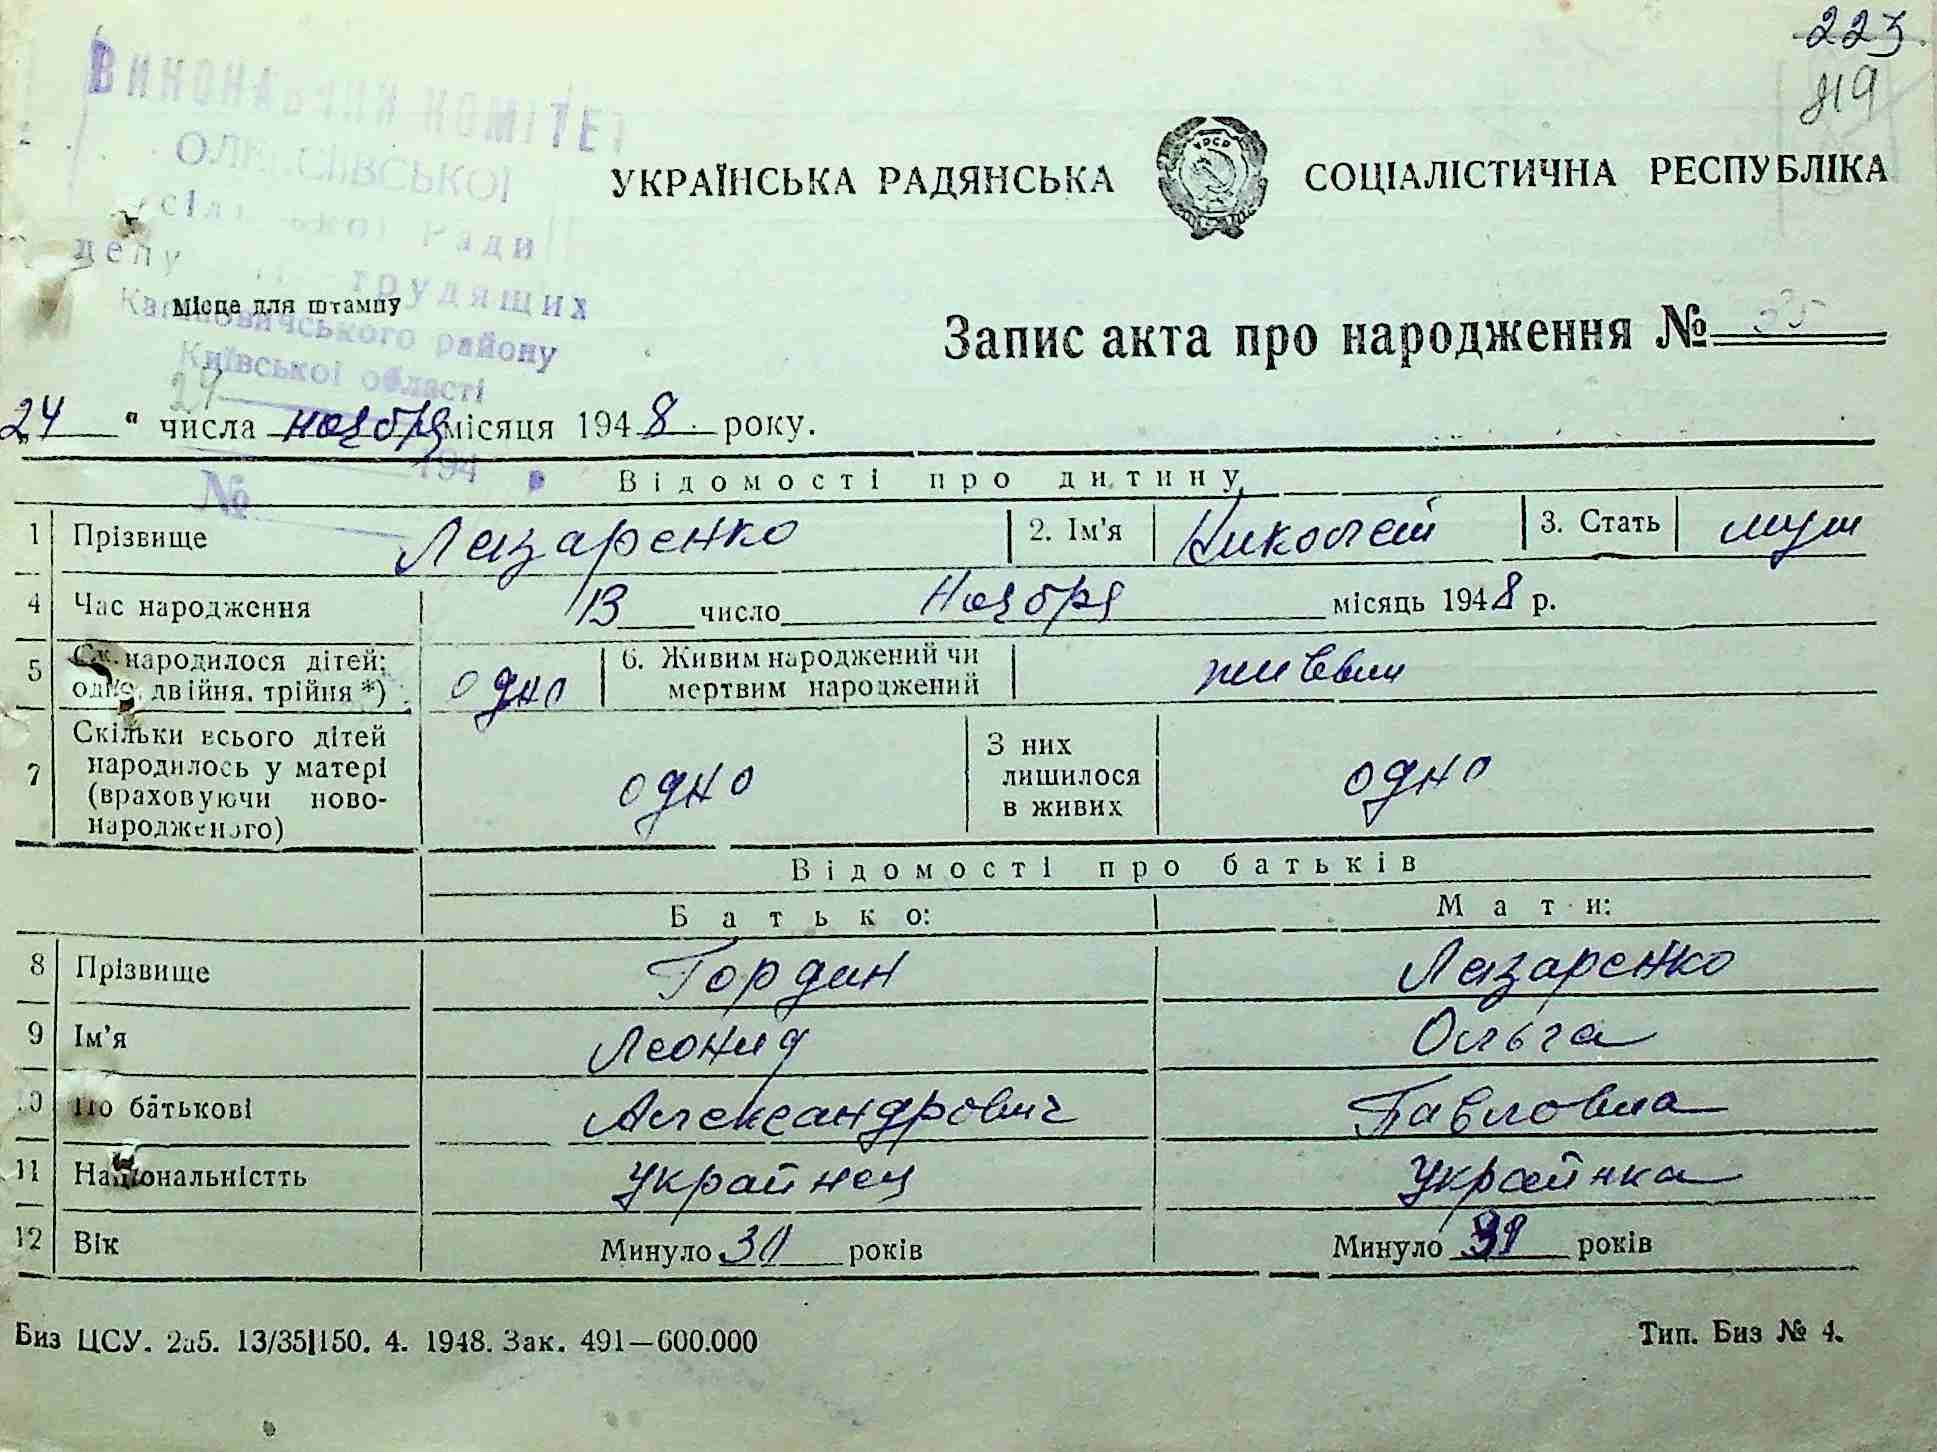 223
119
ВИКОНАВЧИЙ КОМІТЕТ
ОЛЕКСІЇВСЬКОЇ
сільської Ради
депу трудящих
Кагановичського району
Київської області
24
194
№
УКРАЇНСЬКА РАДЯНСЬКА СОЦІАЛІСТИЧНА РЕСПУБЛІКА
Місце для штампу
Запис акта про народження № 35
„24" числа ноября місяця 1948 року.
Відомості про дитину
1 Прізвище Лазаренко 2. Ім'я Николай 3. Стать муж
4 Час народження 13 число Ноября місяць 1948 р.
5 Ск. народилося дітей: одно, двійня, трійня *) одно 6. Живим народжений чи мертвим народжений живым
7 Скільки всього дітей народилось у матері (враховуючи ново-народженого) одно З них лишилося в живих одно
Відомості про батьків
Батько: Мати:
8 Прізвище Гордин Лазаренко
9 Ім'я Леонид Ольга
10 По батькові Александрович Павловна
11 Національністть Украйнец Украйнка
12 Вік Минуло 30 років Минуло років
Биз ЦСУ. 2а5. 13/35|150. 4. 1948. Зак. 491—600.000 Тип. Биз № 4.